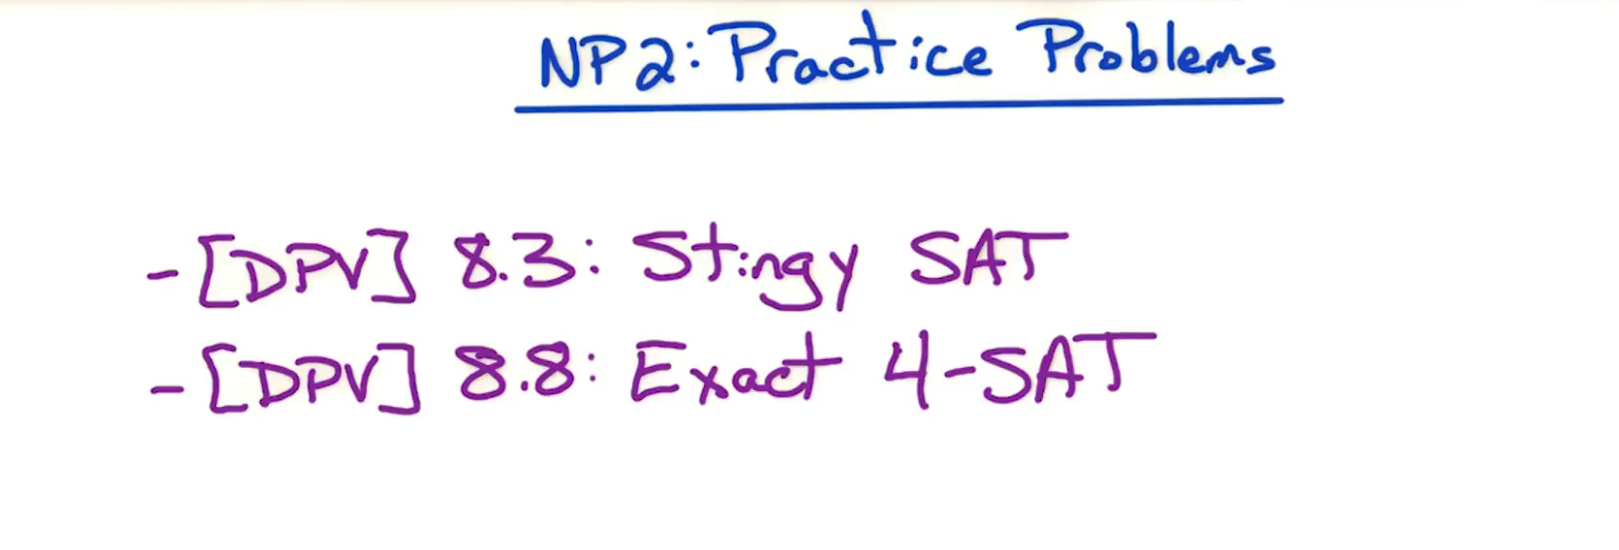 NP2: Practice Problems
- [DPV] 8.3: Stingy SAT
- [DPV] 8.8: Exact 4-SAT